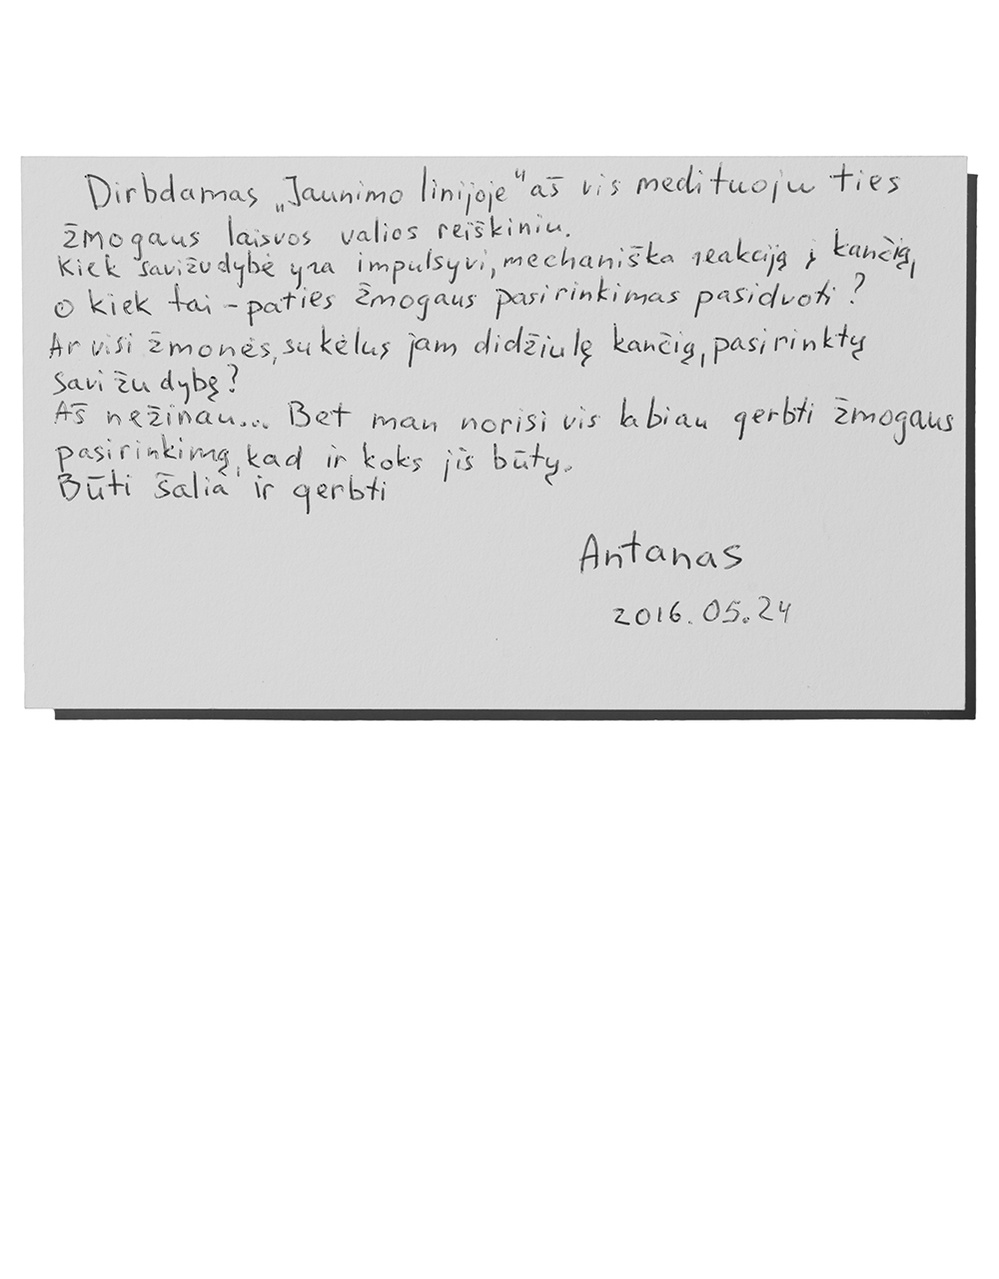 Dirbdamas „Jaunimo linijoje“ aš vis medituoju ties
žmogaus laisvos valios reiškiniu.
Kiek savižudybė yra impulsyvi, mechaniška reakciją į kančią,
o kiek tai – paties žmogaus pasirinkimas pasiduoti?
Ar visi žmonės, sukėlus jam didžiulę kančią, pasirinktų
savižudybę?
Aš nežinau... Bet man norisi vis labiau gerbti žmogaus
pasirinkimą, kad ir koks jis būtų.
Būti šalia ir gerbti
Antanas
2016.05.24